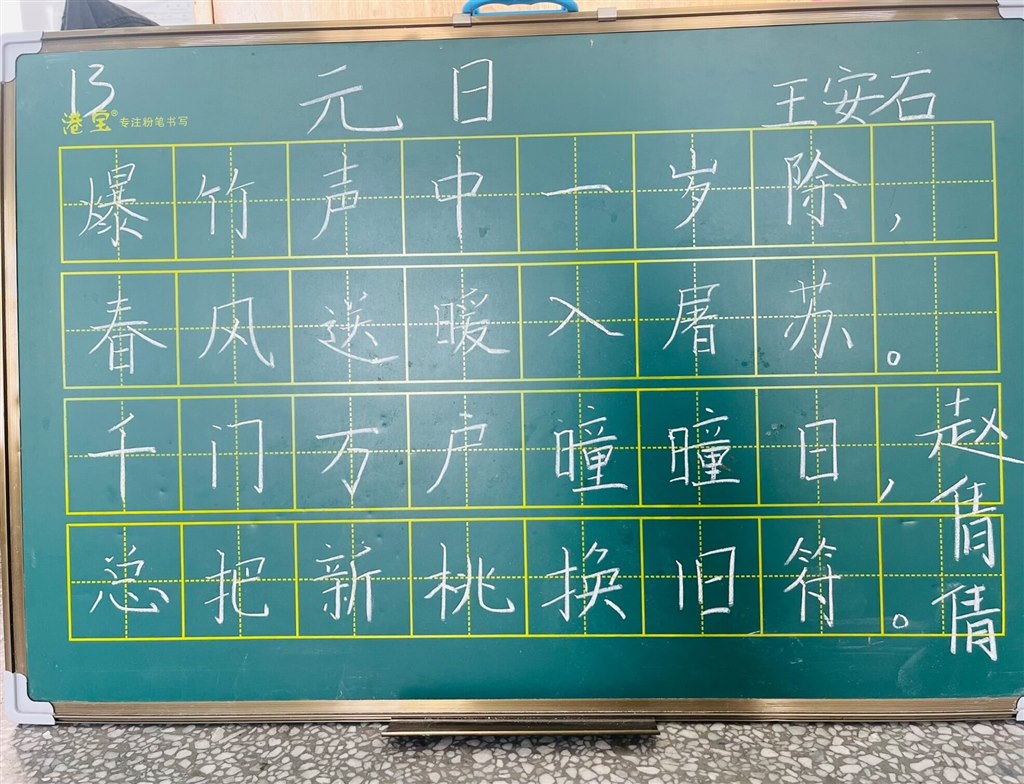 13 元日 王安石
港宝® 专注粉笔书写
爆竹声中一岁除，
春风送暖入屠苏。
千门万户瞳瞳日，
总把新桃换旧符。
赵倩倩